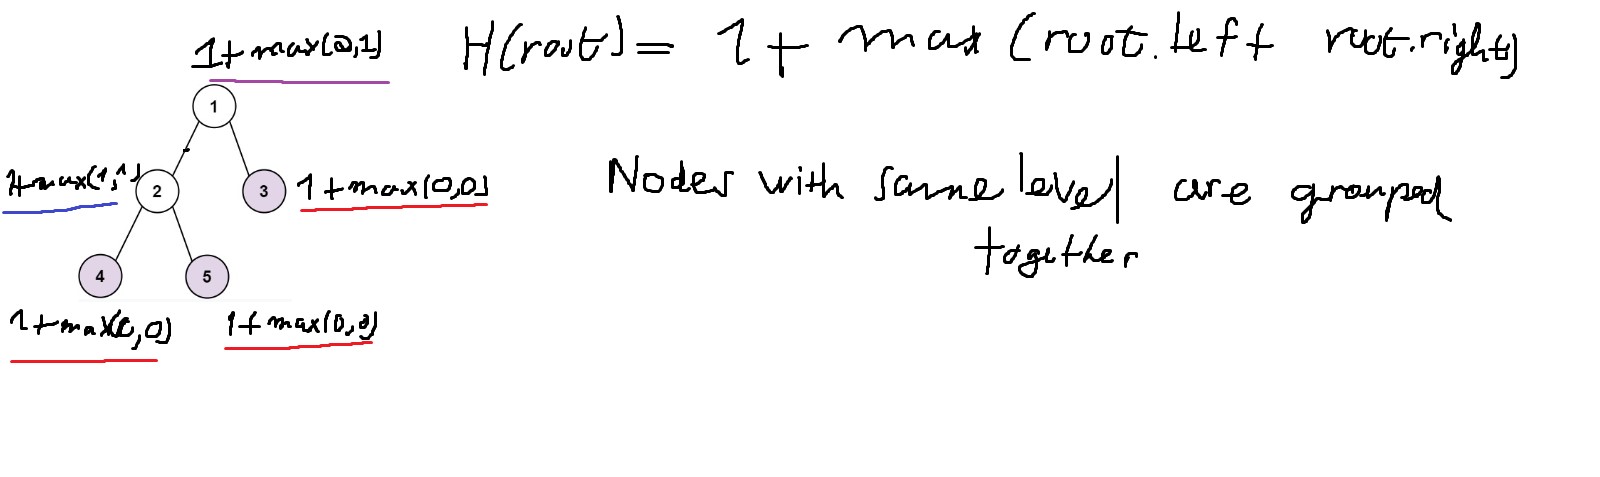 1+max(2,1)
H(root) = 1 + max (root.left root.right)
1
1+max(1,1)
2
3
1+max(0,0)
Nodes with same level are grouped
together
4
5
1+max(0,0)
1+max(0,0)